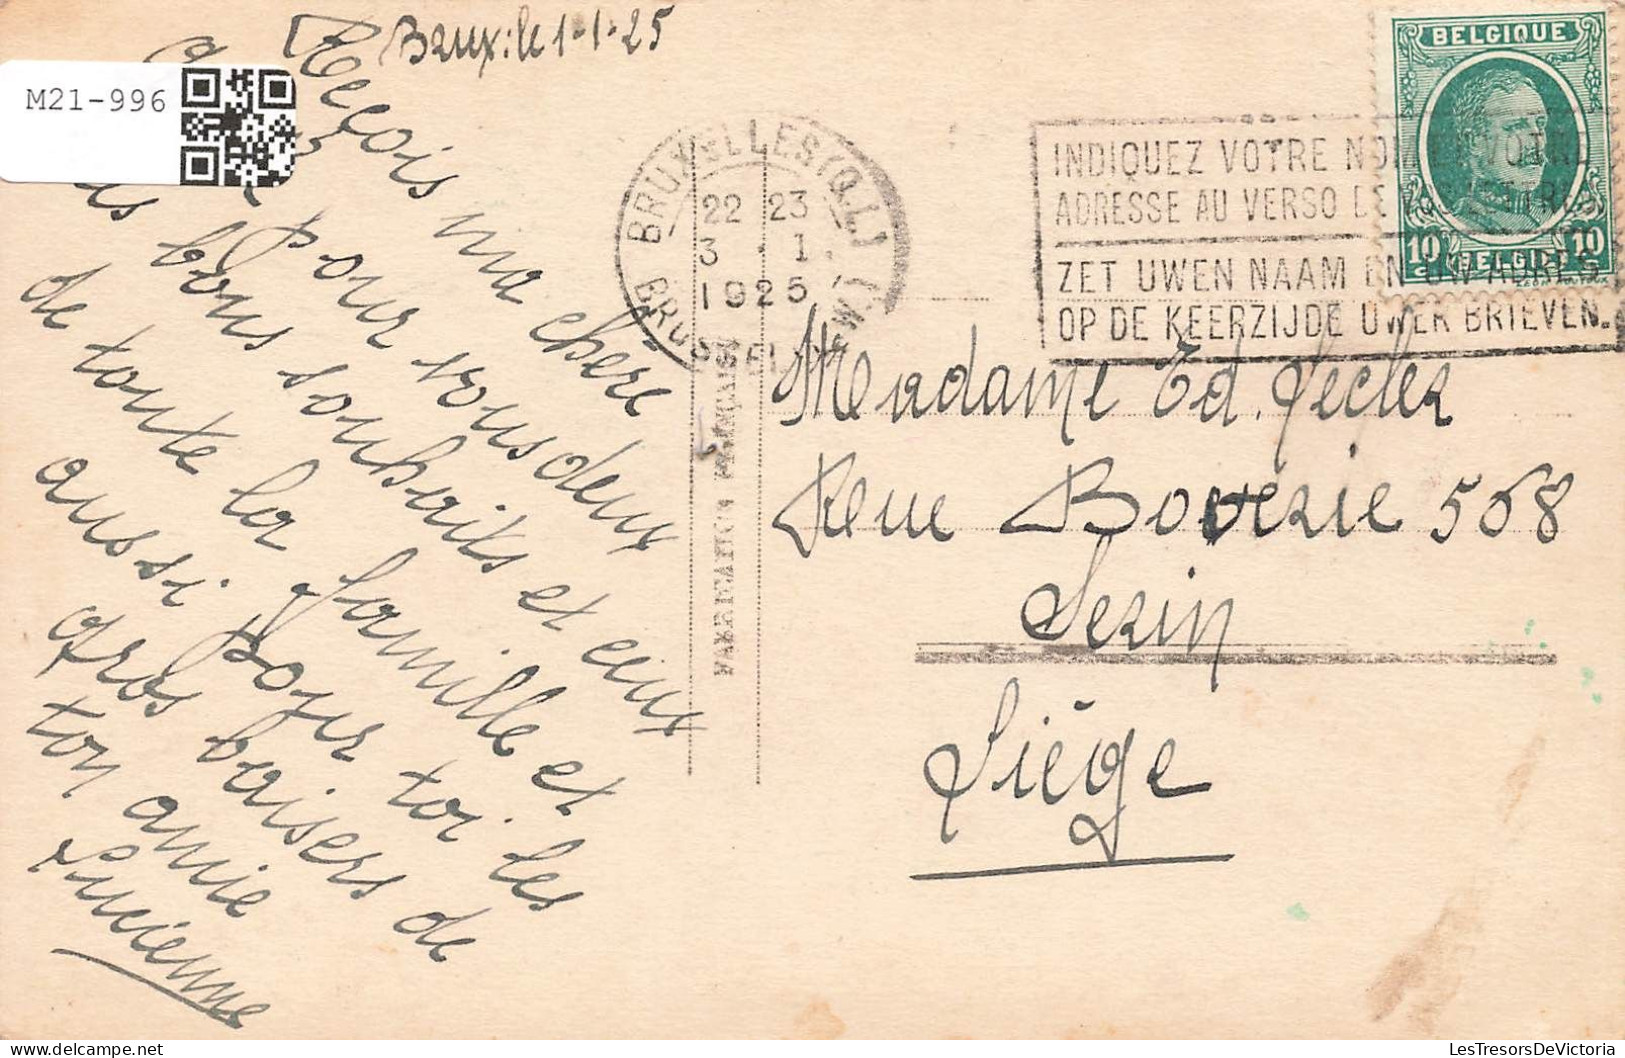 M21-996
Brux: le 1-1-25
Reçois ma chère
pour vous deux
bons souhaits et ceux
de toute la famille et
aussi pour toi les
gros baisers de
ton amie
Lucienne
BRUXELLES (Q.L.)
22 23
3 . 1.
1925
BRUSSEL
INDIQUEZ VOTRE NOM VOTRE
ADRESSE AU VERSO DE VOS LETTRES
ZET UWEN NAAM EN UW ADRES
OP DE KEERZIJDE UWER BRIEVEN.
BELGIQUE
10 10
BELGIË
FABRICATION FRANÇAISE
Madame Ed. Lecler
Rue Boverie 568
Serin
Liège
LesTresorsDeVictoria